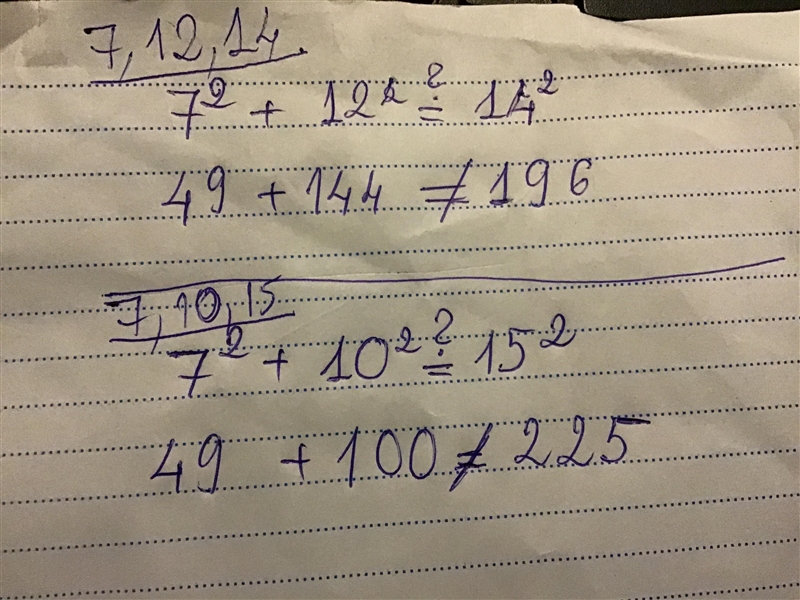 7, 12, 14.
7² + 12² ≟ 14²
49 + 144 ≠ 196
7, 10, 15
7² + 10² ≟ 15²
49 + 100 ≠ 225